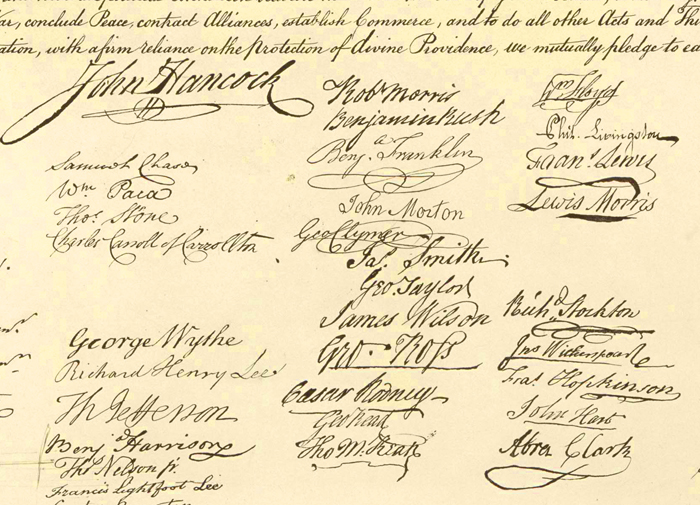 War, conclude Peace, contract Alliances, establish Commerce, and to do all other Acts and Thi
ation, with a firm reliance on the protection of divine Providence, we mutually pledge to ea
John Hancock
Samuel Chase
Wm Paca
Thos. Stone
Charles Carroll of Carrollton
George Wythe
Richard Henry Lee
Th Jefferson
Benja Harrison
Thos Nelson jr.
Francis Lightfoot Lee
Robt Morris
Benjamin Rush
Benja. Franklin
John Morton
Geo Clymer
Jas. Smith
Geo. Taylor
James Wilson
Geo. Ross
Caesar Rodney
Geo Read
Tho M:Kean
Wm Floyd
Phil. Livingston
Frans. Lewis
Lewis Morris
Richd. Stockton
Jno Witherspoon
Fras. Hopkinson
John Hart
Abra Clark